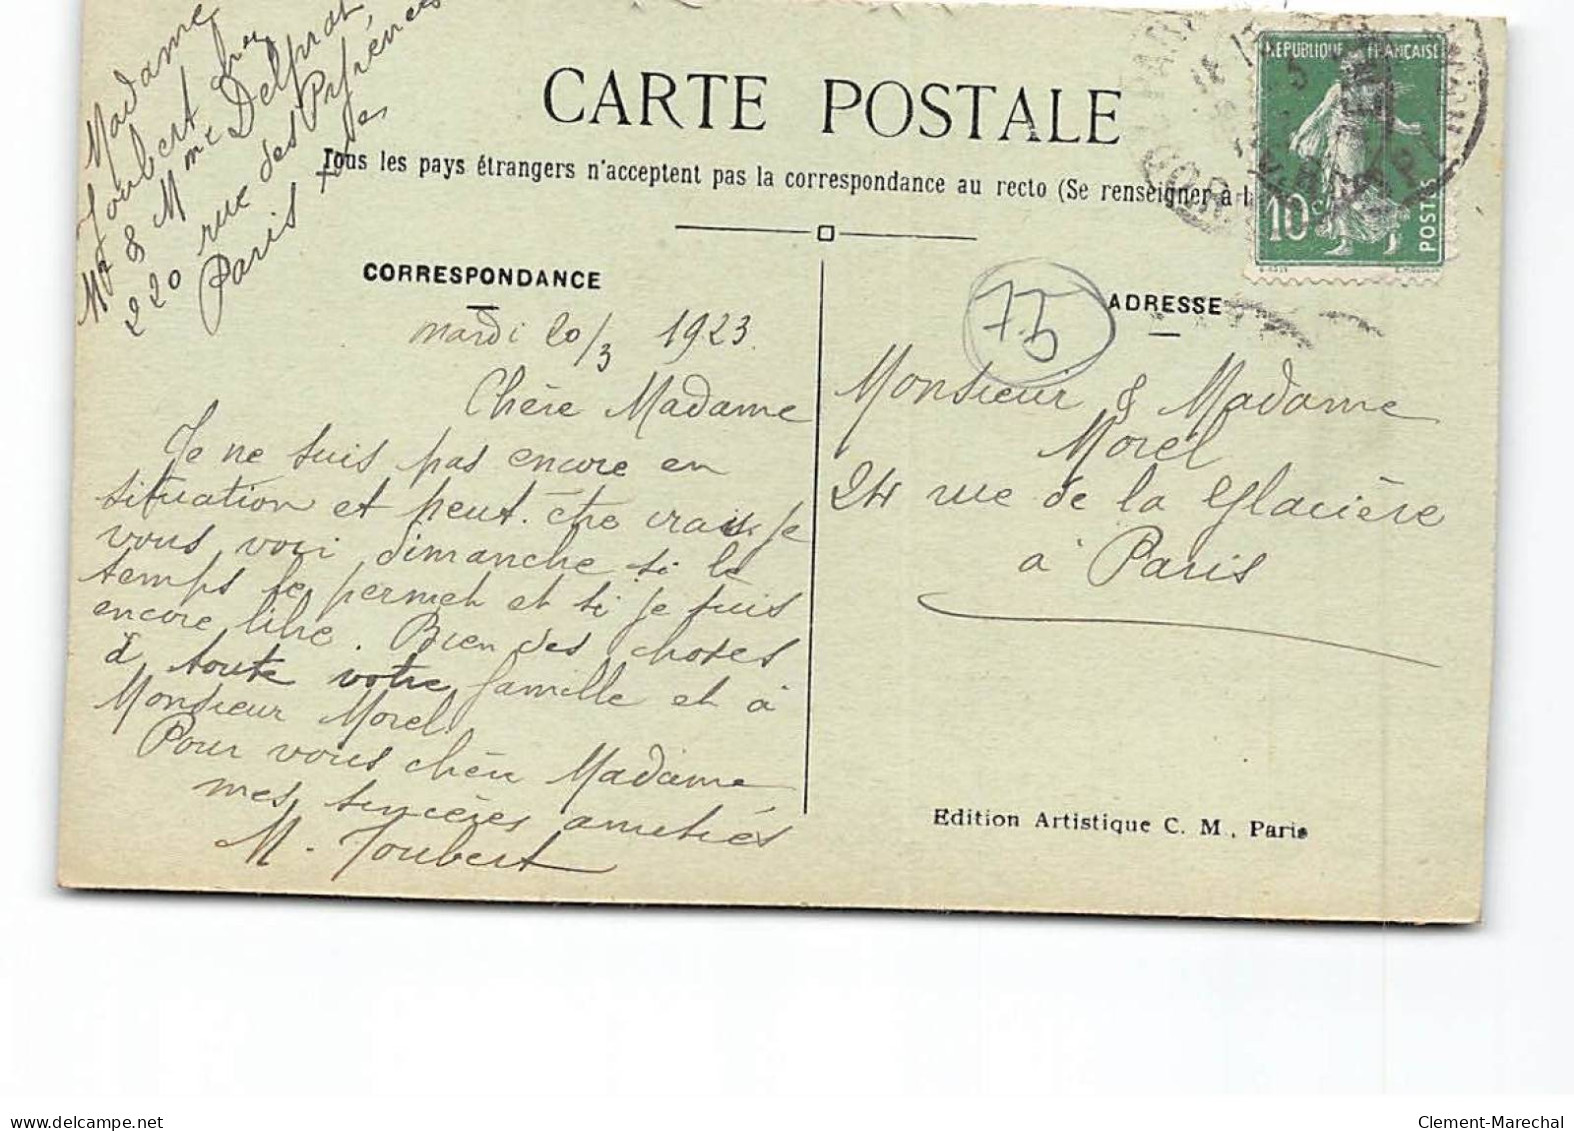 Madame
Joubert chez
Mr & Mme Delprat
220 rue des Pyrénées
Paris XXe
CARTE POSTALE
Tous les pays étrangers n'acceptent pas la correspondance au recto (Se renseigner à l
REPUBLIQUE FRANÇAISE
10c
POSTES
CORRESPONDANCE
ADRESSE
75
mardi 20/3 1923.
Chère Madame
Je ne suis pas encore en
situation et peut-être irais-je
vous voir dimanche si le
temps le permet et si je suis
encore libre. Bien des choses
à toute votre famille et à
Monsieur Morel.
Pour vous chère Madame
mes sincères amitiés
M. Joubert
Monsieur & Madame
Morel
24 rue de la Glacière
à Paris
Edition Artistique C. M., Paris
www.delcampe.net
Clement-Marechal